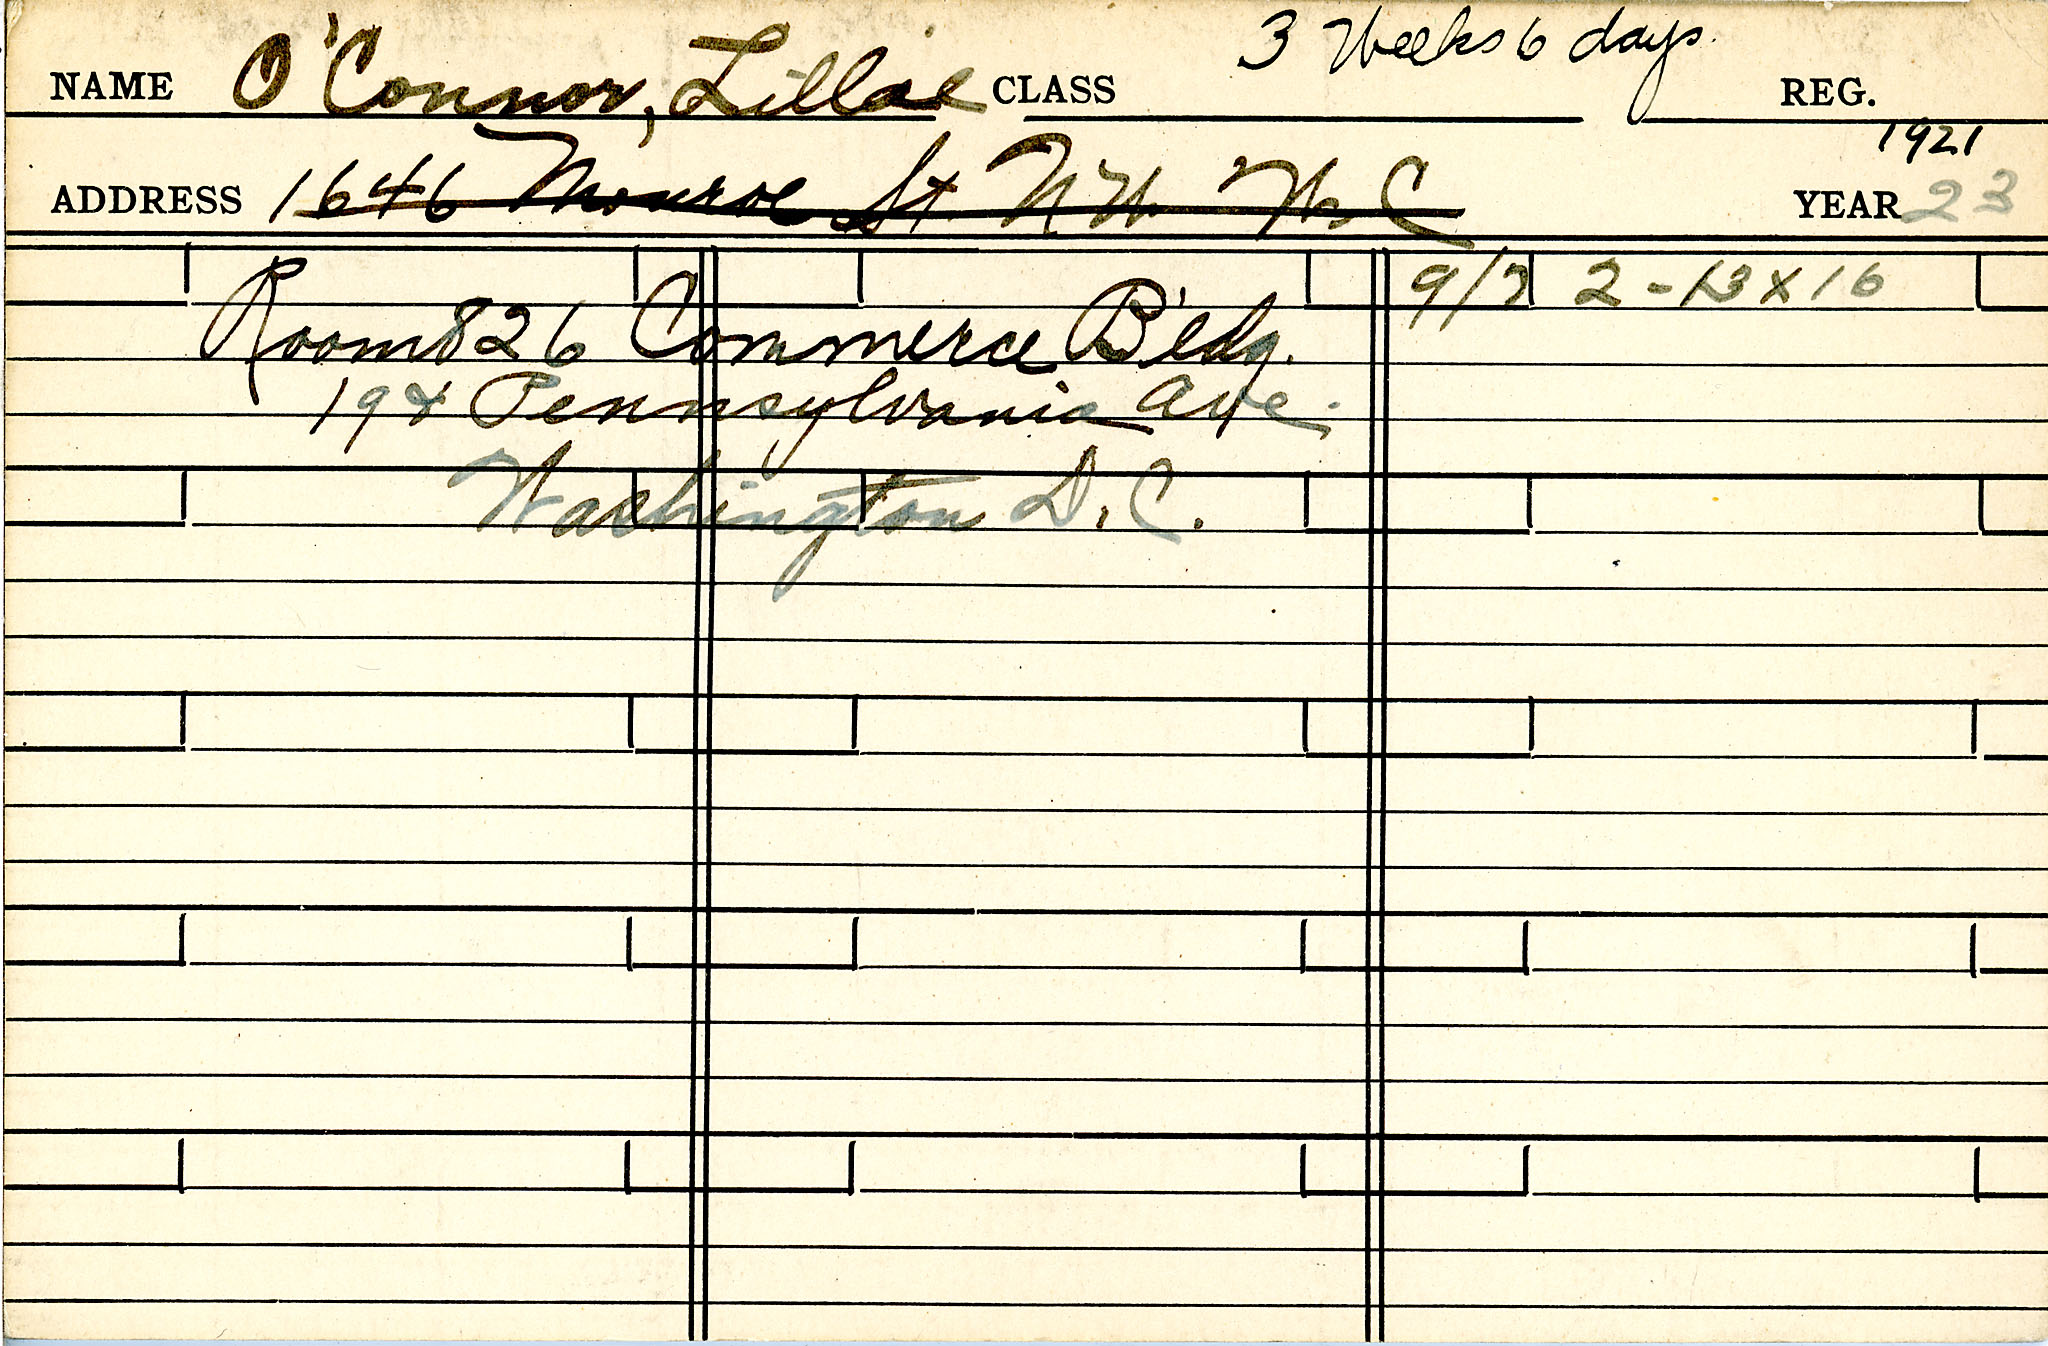 3 Weeks 6 days.
NAME O'Connor, Lillie CLASS REG.
1921
ADDRESS 1646 Monroe St. N W W C YEAR 23
9/7 2-13x16
Room 826 Commerce B'ldg.
194 Pennsylvania Ave.
Washington D.C.